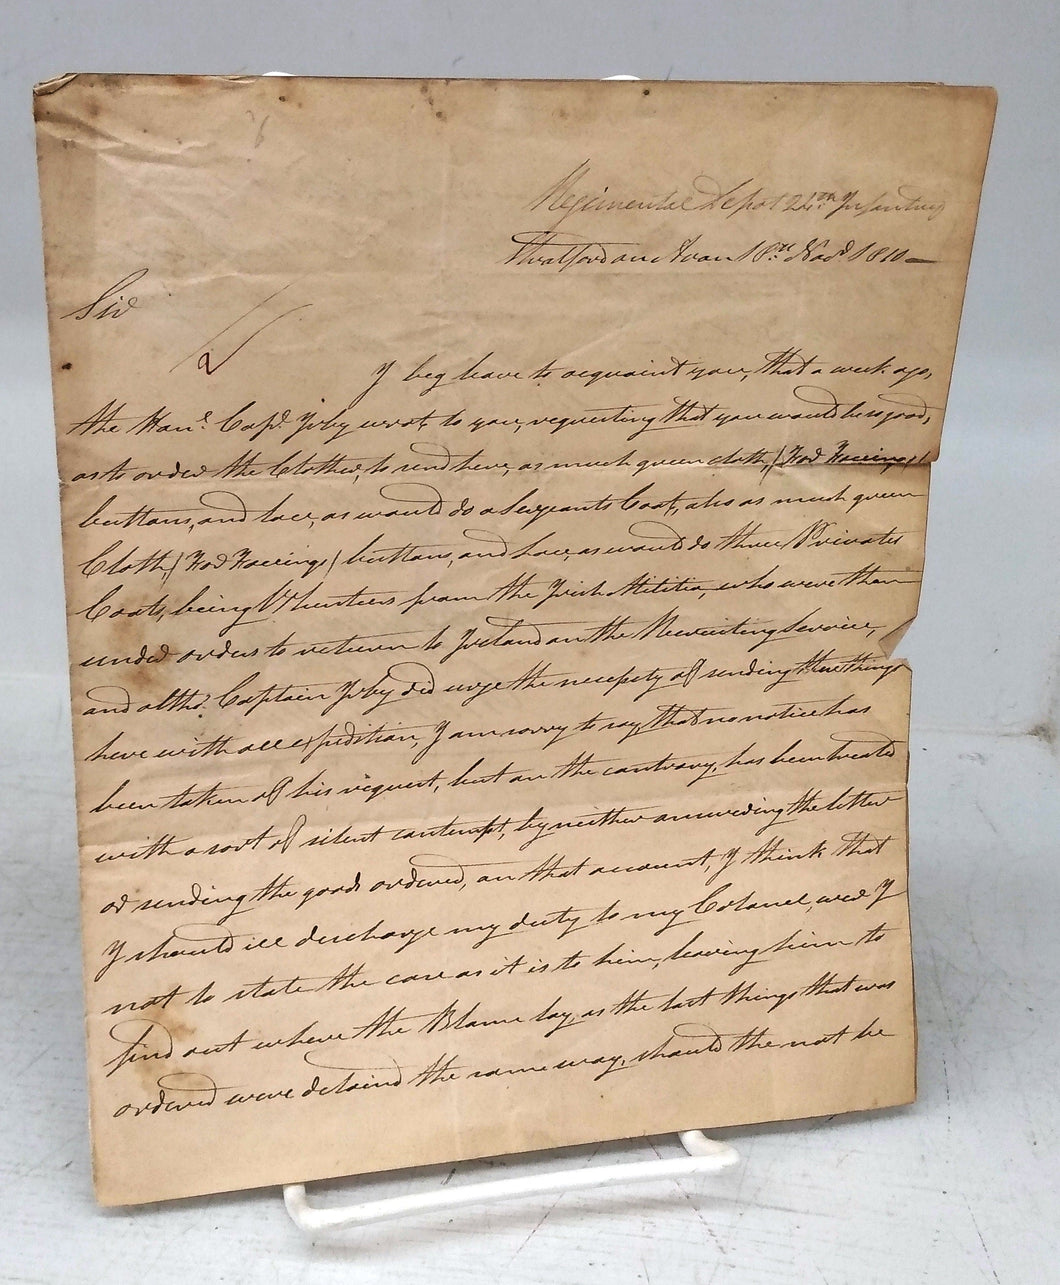 Regimental Depot 24th Infantry
Stratford on Avon 18th Novr 1810
Sir
I beg leave to acquaint you, that a week ago,
the Honl. Capt. Irby wrote to you, requesting that you would be so good,
as to order the Clothier, to send here, as much green cloth, (for Facings)
buttons, and lace, as would do a Sergeants Coat, also as much green
Cloth, (for Facings) buttons, and Lace, as would do three Privates
Coats, being Volunteers from the Irish Militia, who were then
under orders to return to Ireland on the Recruiting Service,
and altho' Captain Irby did urge the necessity of sending these things
here with all expedition, I am sorry to say, that no notice has
been taken of his request, but on the contrary, has been treated
with a sort of silent contempt, by neither answering the letter
or sending the goods ordered, on that account, I think that
I should ill discharge my duty to my Colonel, were I
not to state the case as it is to him, leaving him to
find out where the Blame lay, as the last things that was
ordered were detaind the same way, should the not be